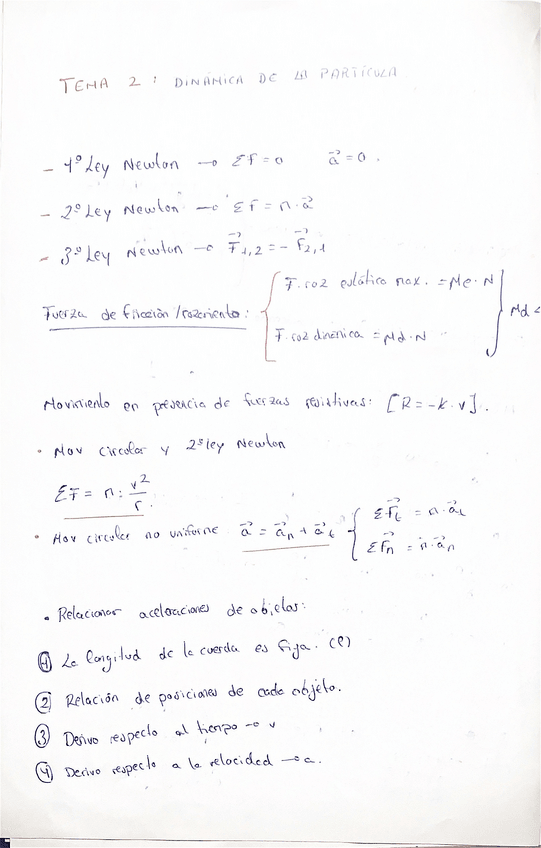 TEMA 2: DINÁMICA DE LA PARTÍCULA
- 1º Ley Newton → ΣF = 0   a⃗ = 0.
- 2º Ley Newton → ΣF = m·a⃗
- 3º Ley Newton → F⃗1,2 = - F⃗2,1
Fuerza de fricción/rozamiento:
F. roz estático max. = Me·N
F. roz dinámica = Md·N
Md <
Movimiento en presencia de fuerzas resistivas: [R = -k·v].
• Mov circular y 2º ley Newton
ΣF = m · v²/r.
• Mov circular no uniforme a⃗ = a⃗n + a⃗t
ΣF⃗t = m·a⃗t
ΣF⃗n = m·a⃗n
• Relacionar aceleraciones de objetos:
① La longitud de la cuerda es fija. (l)
② Relación de posiciones de cada objeto.
③ Derivo respecto al tiempo → v
④ Derivo respecto a la velocidad → a.